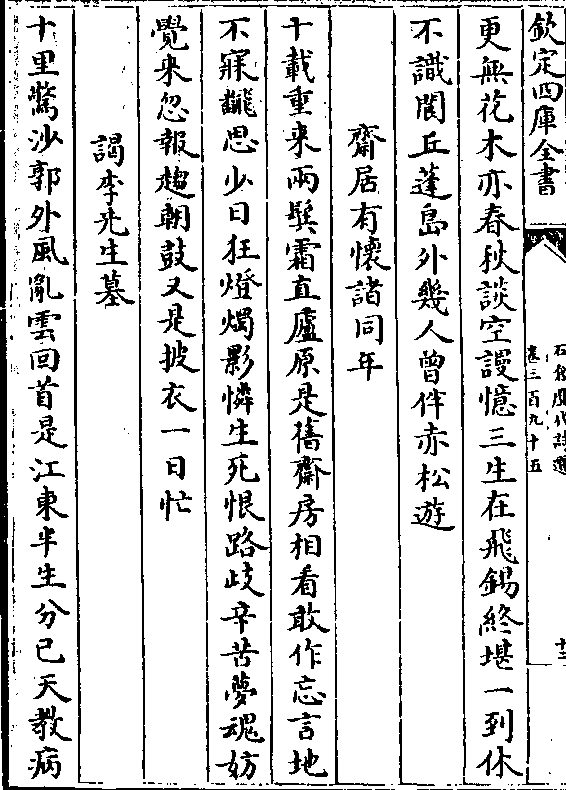 欽定四庫全書
石倉歷代詩選
卷三百九十五
更無花木亦春秋談空謾憶三生在飛錫終堪一到休
不識閬丘蓬島外幾人曾伴赤松遊
齋居有懷諸同年
十載重来兩鬓霜直廬原是舊齋房相看敢作忘言地
不寐翻思少日狂燈燭影憐生死恨路歧辛苦夢魂妨
覺来忽報趨朝鼓又是披衣一日忙
謁李先生墓
十里驚沙郭外風亂雲回首是江東半生分已天教病